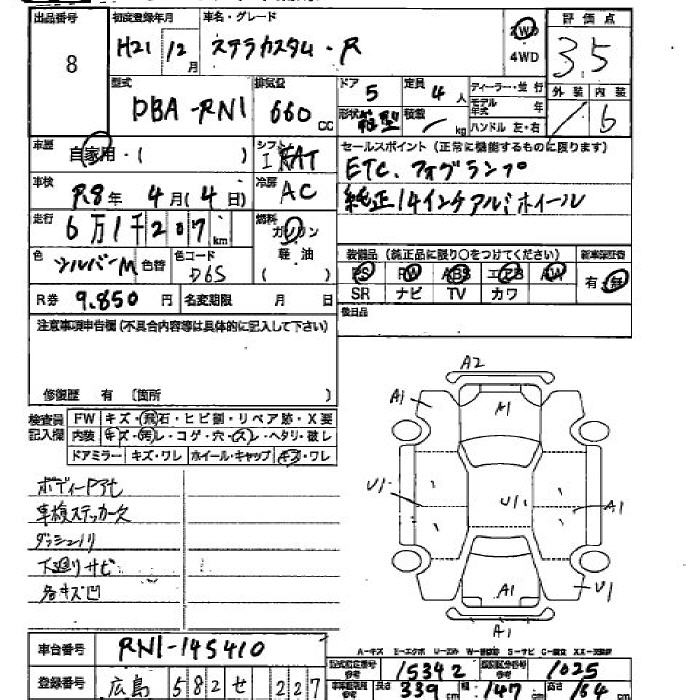 出品番号
8
初度登録年月
H21 12 月
車名・グレード
ステラカスタム・R
2WD
4WD
評価点
3.5
外装 内装
b
型式
DBA-RN1
排気量
660 cc
ドア 5
定員 4 人
形状 箱型
積載 kg
ディーラー・並行
モデル年式 年
ハンドル 左・右
車歴
自家用・( )
シフト
AT
車検
R8年 4月(4日)
冷房
AC
走行
6万1千207 km
燃料
ガソリン
軽油
( )
色
シルバーM
色替
色コード
D6S
R券 9.850 円
名変期限 月 日
セールスポイント (正常に機能するものに限ります)
ETC、フォグランプ
純正14インチアルミホイール
装備品 (純正品に限り○をつけてください)
新車保証書
PS PW ABS エアB AW
有・無
SR ナビ TV カワ
後日品
注意事項申告欄 (不具合内容等は具体的に記入して下さい)
修復歴 有 〔箇所 〕
検査員
記入欄
FW キズ・飛石・ヒビ割・リペア跡・X要
内装 キズ・汚レ・コゲ・穴・スレ・ヘタリ・破レ
ドアミラー キズ・ワレ ホイール・キャップ キズ・ワレ
ボディーアセ
車検ステッカー欠
ダッシュノリ
下廻りサビ
各キズ凹
A2
A1
A1
U1
U1
A1
A1
U1
A1
A-キズ E-エクボ U-凹み W-補修跡 S-サビ C-腐食 XX-交換済
車台番号 RN1-145410
登録番号 広島 582 せ 227
型式指定番号 参考 15342
類別区分番号 参考 1025
車輌重量用 参考
長さ 339 cm 幅 147 cm 高さ 164 cm